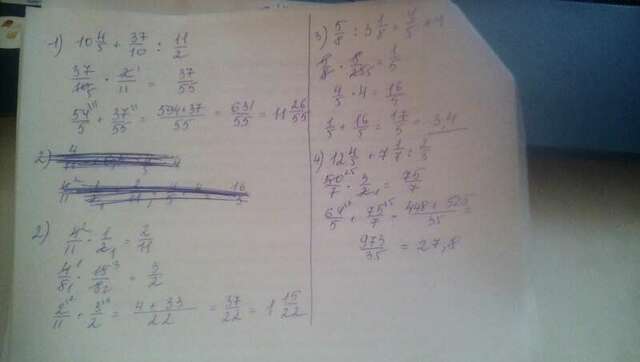 1) 10 4/5 + 37/10 : 11/2
37/10 · 2/11 = 37/55
54/5 + 37/55 = 594+37/55 = 631/55 = 11 26/55
2)
2) 4/11 · 1/2 = 2/11
4/8 · 15/8 = 3/2
2/11 + 3/2 = 4+33/22 = 37/22 = 1 15/22
3) 5/8 : 3 1/8 + 4/5 · 4
5/8 · 8/25 = 1/5
4/5 · 4 = 16/5
1/5 + 16/5 = 17/5 = 3,4
4) 12 4/5 + 7 1/7 :
50/7 · 3/2 = 75/7
64/5 + 75/7 = 448+525/35 =
973/35 = 27,8